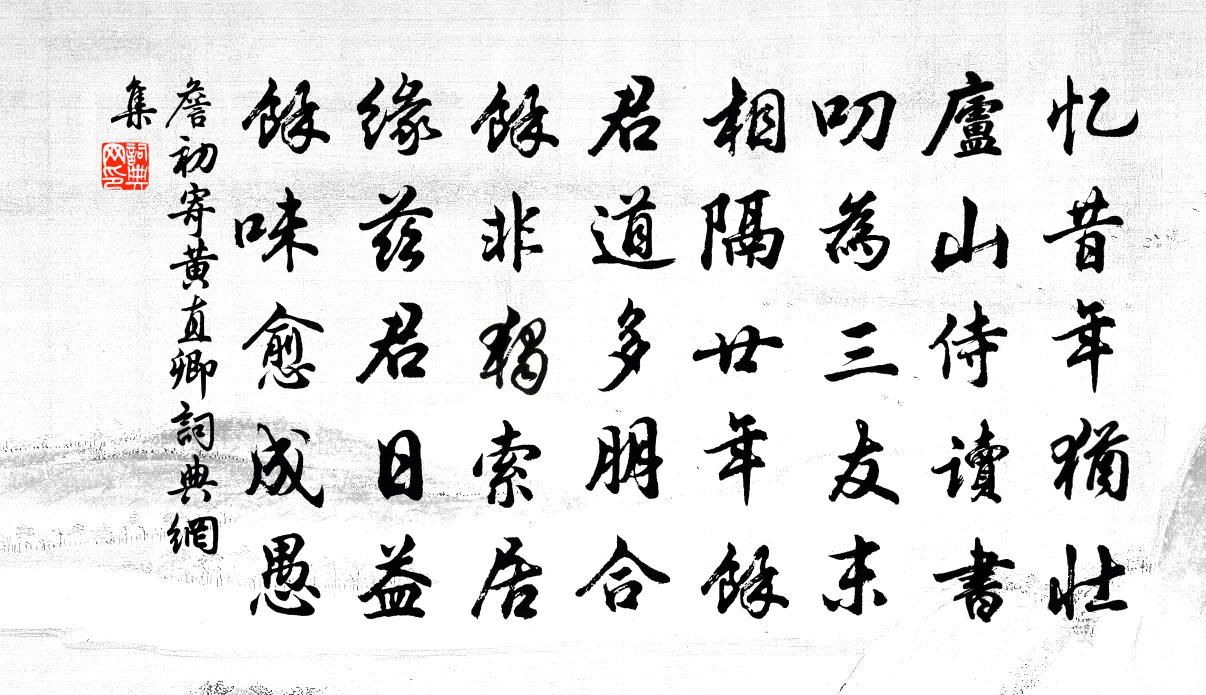 忆昔年猶壮
廬山侍讀書
叨為三友末
相隔廿年餘
君道多朋合
餘非獨索居
緣茲君日益
餘味愈成愚
詹初寄黃直卿詞典網
集
詞典
网印